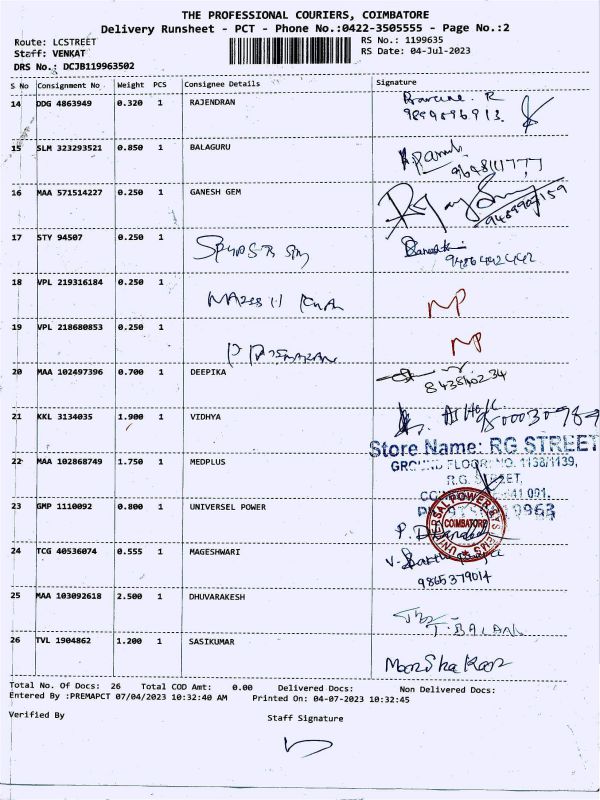 THE PROFESSIONAL COURIERS, COIMBATORE
Delivery Runsheet - PCT - Phone No.:0422-3505555 - Page No.:2
Route: LCSTREET
RS No.: 1199635
Staff: VENKAT
RS Date: 04-Jul-2023
DRS No.: DCJB119963502
S No Consignment No Weight PCS Consignee Details Signature
14 DDG 4863949 0.320 1 RAJENDRAN
15 SLM 323293521 0.850 1 BALAGURU
16 MAA 571514227 0.250 1 GANESH GEM
17 STY 94507 0.250 1
9486442442
18 VPL 219316184 0.250 1
NP
19 VPL 218680853 0.250 1
NP
20 MAA 102497396 0.700 1 DEEPIKA
21 KKL 3134035 1.900 1 VIDHYA
Store Name: RG STREET
22 MAA 102868749 1.750 1 MEDPLUS
GROUND FLOOR: NO. 1138/1139,
R.G. STREET,
23 GMP 1110092 0.800 1 UNIVERSEL POWER
UNIVERSAL POWER SYSTEMS
COIMBATORE
24 TCG 40536074 0.555 1 MAGESHWARI
9865379014
25 MAA 103092618 2.500 1 DHUVARAKESH
T. BALAN
26 TVL 1904862 1.200 1 SASIKUMAR
Total No. Of Docs: 26 Total COD Amt: 0.00 Delivered Docs: Non Delivered Docs:
Entered By :PREMAPCT 07/04/2023 10:32:40 AM Printed On: 04-07-2023 10:32:45
Verified By
Staff Signature